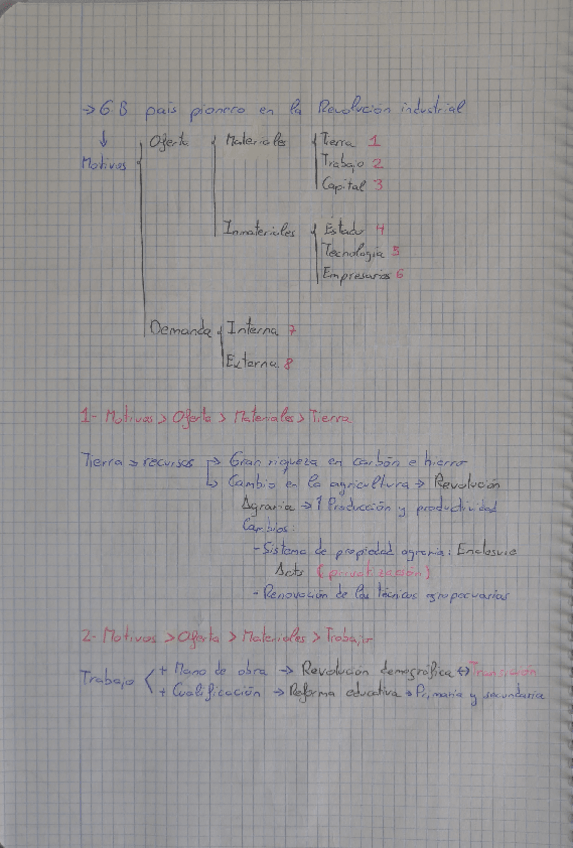 → GB país pionero en la Revolución industrial
↓ Oferta Materiales Tierra 1
Motivos Trabajo 2
Capital 3
Inmateriales Estado 4
Tecnología 5
Empresarios 6
Demanda Interna 7
Externa 8
1- Motivos > Oferta > Materiales > Tierra
Tierra > recursos → Gran riqueza en carbón e hierro
↳ Cambio en la agricultura → Revolución
Agraria → ↑ Producción y productividad
Cambios:
- Sistema de propiedad agraria: Enclosure
Acts (privatización)
- Renovación de las técnicas agropecuarias
2- Motivos > Oferta > Materiales > Trabajo
Trabajo + Mano de obra → Revolución demográfica ↔ Transición
+ Cualificación → Reforma educativa → Primaria y secundaria